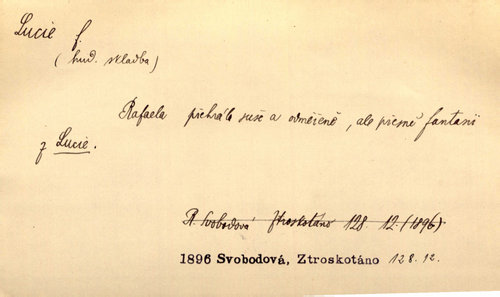 Lucie f.
(hud. skladba)
Rafaela přehrála suše a odměřeně, ale přesně fantasii
z Lucie.
R. Svobodová Ztroskotáno 128. 12. (1896)
1896 Svobodová, Ztroskotáno 128. 12.